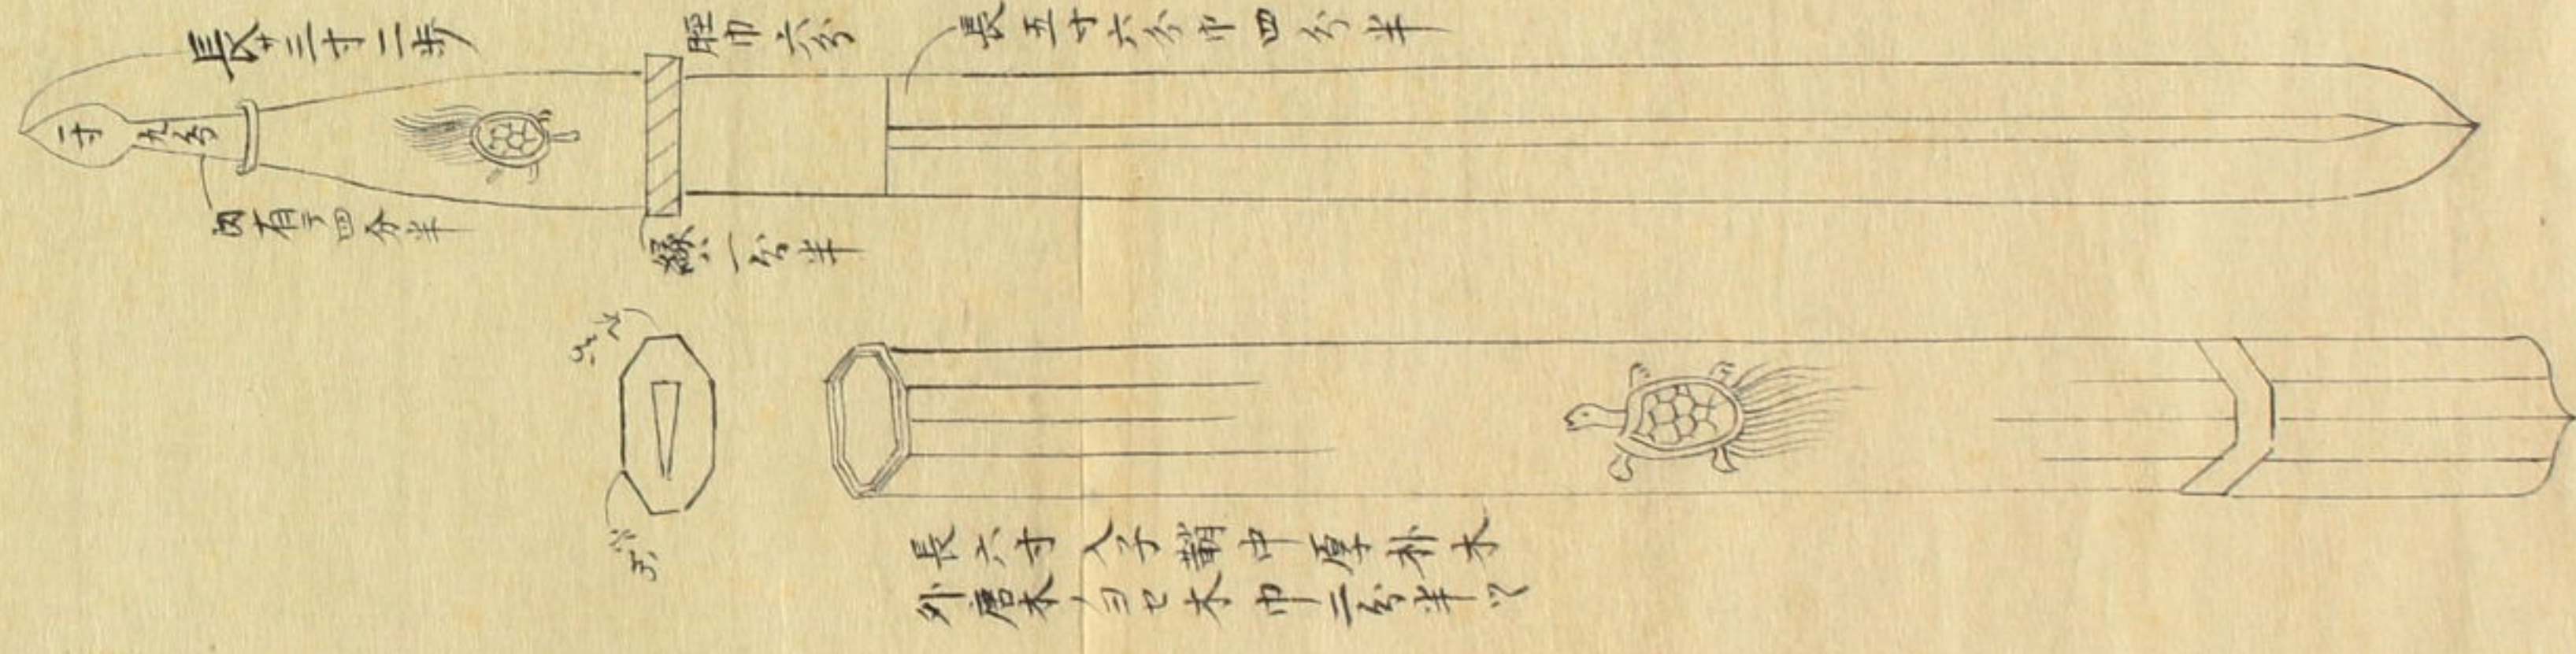 長サ三寸二歩
一寸
九分
内有テ四分半
脛巾六分
長五寸六分巾四分半
一分半
六分
長六寸入子鞘中厚朴木
外唐木ノヨセ木巾二分半ツ